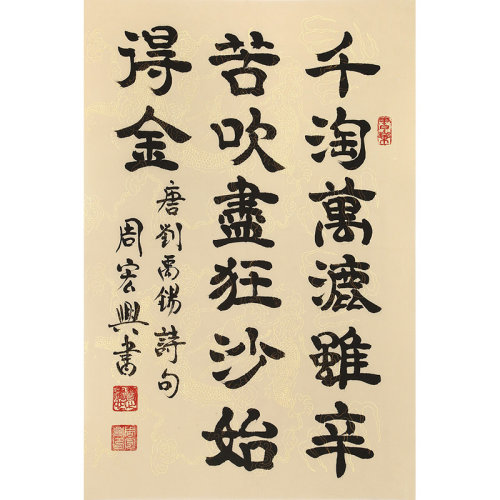 千淘萬漉雖辛
苦吹盡狂沙始
得金
唐劉禹錫詩句
周宏興書